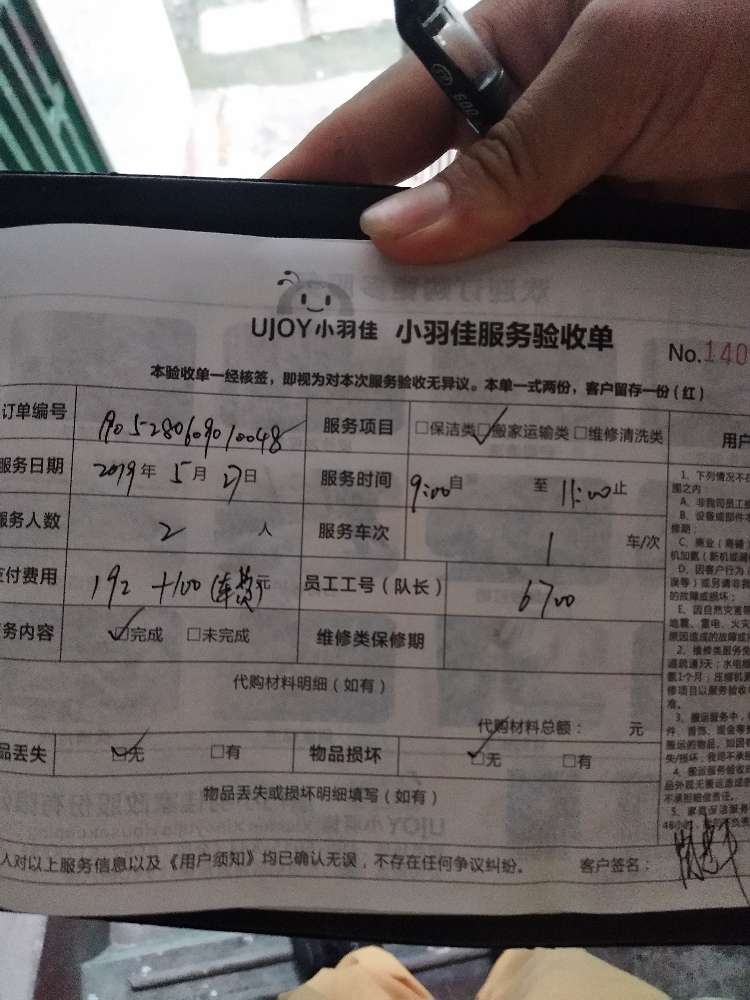 UJOY小羽佳 小羽佳服务验收单
No.140
本验收单一经核签，即视为对本次服务验收无异议。本单一式两份，客户留存一份（红）
订单编号 服务项目 □保洁类 □搬家运输类 □维修清洗类 用户
服务日期 2019年 5月 27日 服务时间 9:00自 至 11:00止
服务人数 2 人 服务车次 1 车/次
应付费用 192 +100（车费）元 员工工号（队长） 6700
务内容 □完成 □未完成 维修类保修期
代购材料明细（如有）
代购材料总额： 元
品丢失 □无 □有 物品损坏 □无 □有
物品丢失或损坏明细填写（如有）
人对以上服务信息以及《用户须知》均已确认无误，不存在任何争议纠纷。 客户签名：
1、下列情况不在
围之内：
A、非我司员工
B、设备或部件
修期；
C、商业（商铺）
机加氨（新机或漏
D、因客户行为
误等）或另请非我
的故障或损坏；
E、因自然灾害
地震、雷电、火灾
原因造成的故障或
2、维修类服务免
道疏通3天；水电
氨1个月；压缩机
修项目以服务验收
准。
3、搬运服务中，
件、首饰、现金等
搬运的物品，如因
失/损坏，我司不承
4、搬运服务验收
品外观无搬运造成
不承担赔偿责任。
5、家庭保洁服务
48小